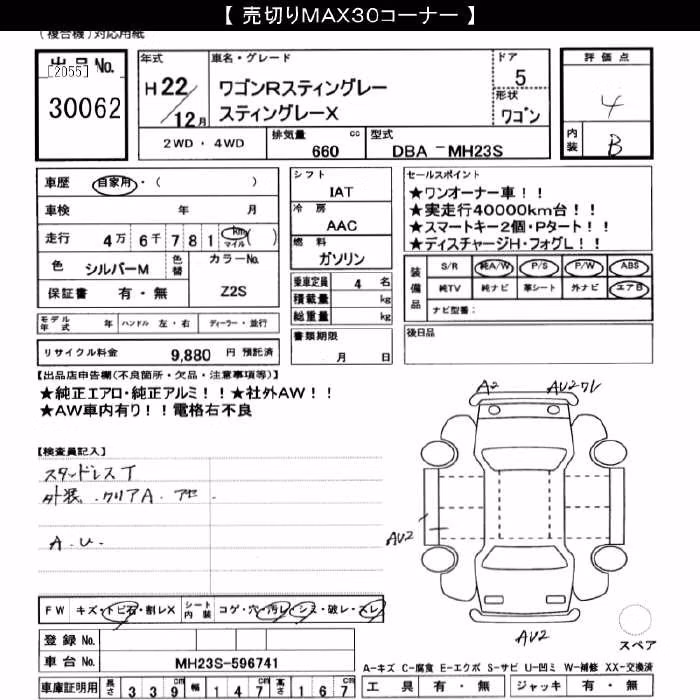 【 売切りMAX30コーナー 】
(複合機)対応用紙
出品 No.
[2055]
30062
年式
H 22/12月
車名・グレード
ワゴンRスティングレー
スティングレーX
ドア
5
形状
ワゴン
評価点
4
内装
B
2WD ・ 4WD
排気量 cc
660
型式
DBA -MH23S
車歴 自家用・( )
車検 年 月
走行 4万 6千 7 8 1 km マイル ( )
色 シルバーM 色替 カラーNo.
保証書 有・無 Z2S
シフト
IAT
冷房
AAC
燃料
ガソリン
乗車定員 4 名
積載量 kg
総重量 kg
書類期限
月 日
セールスポイント
★ワンオーナー車！！
★実走行40000km台！！
★スマートキー2個・Pタート！！
★ディスチャージH・フォグL！！
装備品
S/R 純A/W P/S P/W ABS
純TV 純ナビ 革シート 外ナビ エアB
ナビ型番:
後日品
モデル年式 年 ハンドル 左・右 ディーラー・並行
リサイクル料金 9,880 円 預託済
【出品店申告欄(不良箇所・欠品・注意事項等)】
★純正エアロ・純正アルミ！！★社外AW！！
★AW車内有り！！電格右不良
【検査員記入】
スタッドレスT
外装、クリアA.アセ.
A.U.
A2
AU2ワレ
AU2
AU2
スペア
FW キズ・トビ石・割レX シート内装 コゲ・穴・汚レ・シミ・破レ・スレ
登録 No.
車台 No. MH23S-596741
車庫証明用 長さ 339 幅 147 高さ 167
A-キズ C-腐食 E-エクボ S-サビ U-凹ミ W-補修 XX-交換済
工具 有・無 ジャッキ 有・無